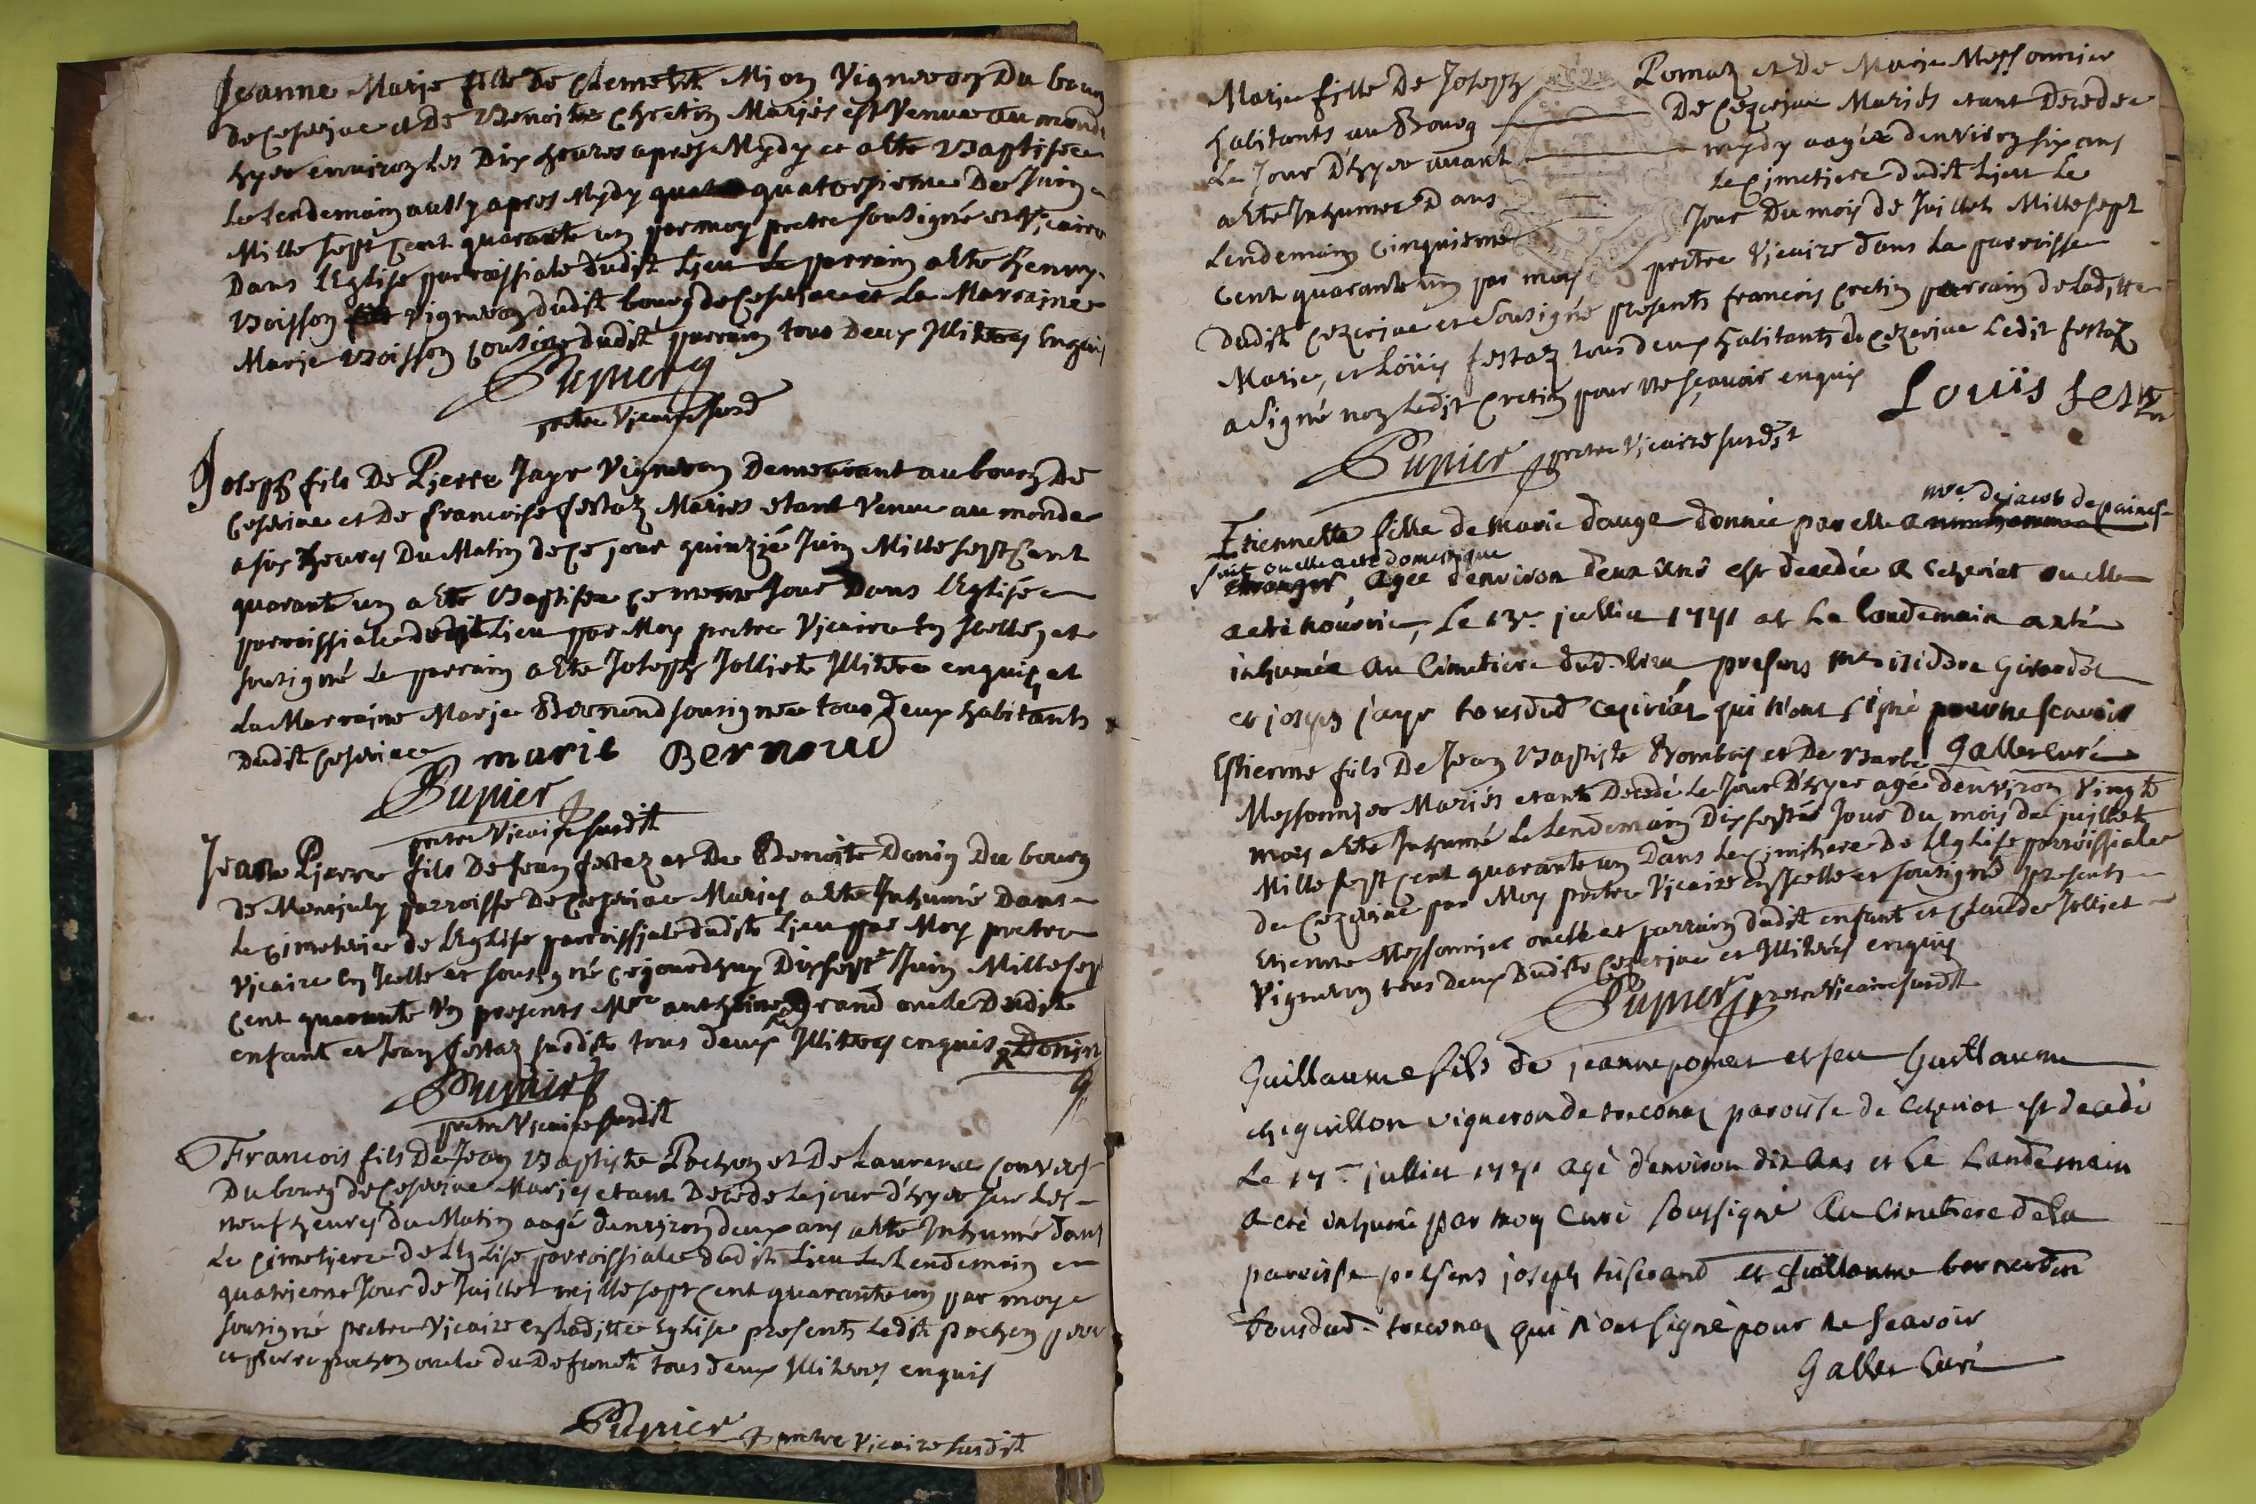 Jeanne Marie fille De Clement Mion Vigneron Du bourg
De Ceserjac et De Benoite Chretin Mariés est Venue au monde
hyer environ les Dix heures apres Mydy et a été Baptisée
le lendemain aussy apres Mydy quatorsieme De Juin
Mille sept cent quarante un par moy pretre sousigné et Vicaire
Dans l'Eglise parroissiale dudit Lieu Le parrain a ete henry
Boisson vigneron dudit bourg de Ceserjac et La Marraine
Marie Boisson cousine dudit parrain tous Deux Illitrés Enquis
Pupier
pretre Vicaire susd
Joseph fils De Pierre Jayr Vigneron Demeurant au bourg De
Ceserjac et De francoise festaz Mariés etant Venu au monde
a six heures Du Matin de Ce jour quinzié Juin Mille sept Cent
quarante un a ete Baptisé ce meme Jour Dans l'Eglise
parroissiale dudit Lieu par Moy pretre Vicaire en Icelle et
sousigné Le parrain a ete Joseph Jolliet Illitré enquis et
La Marraine Marie Bernond sousignée tous Deux habitants
Dudit Ceserjac marie Bernoud
Pupier
pretre Vicaire susdit
Jean Pierre fils De Jean festaz et De Benoite Donin Du bourg
de Montjuly parroisse De Ceserjac Mariés a ete Inhumé Dans
Le Cimetiere de l'Eglise parroissiale dudit Lieu par Moy pretre
Vicaire en Icelle et sousigné Cejourdhuy Dixsept Juin Mille sept
Cent quarante Un presents Mre anthoine Grand oncle Dudit
enfant et Jean festaz susdit tous deux Illitrés enquis Donin
Pupier
pretre Vicaire susdit
Francois fils De Jean Baptiste Pochon et De Laurence Convert
Du bourg de Ceserjac Mariés etant Decedé le jour d'hyer sur Les
neuf heures du Matin aagé denviron deux ans a ete Inhumé dans
Le Cimetiere de l'Eglise parroissiale dudit Lieu Le Lendemain
quatrieme Jour de Juillet mille sept cent quarante un par moy
sousigné pretre Vicaire en Laditte Eglise presents Ledit pochon pere
et pierre pochon oncle du Defunct tous deux Illitrés enquis
Pupier pretre Vicaire susdit
Marie fille De Joseph Pomaz et De Marie Messonnier
habitants au Bourg De Cezerjac Mariés etant Decedée
Le Jour D'hyer avant mydy aagée denviron six ans
a ete Inhumée Dans Le Cimetiere dudit Lieu Le
Lendemain Cinquieme Jour Du mois de Juillet Mille sept
Cent quarante un par moy pretre Vicaire dans La parroisse
dudit Cezerjac et sousigné presents francois Cretin parrain de Laditte
Marie, et Loüis festaz tous deux habitants de Cezerjac Ledit festaz
a signé non Ledit Cretin pour ne sçavoir enquis
Louïs festaz
Pupier pretre Vicaire susdit
mre de jacob de
Etiennette fille de marie dauge donnée par elle a
ou elle a eté domestique
etranger, agée d'environ deux ans est decedée a Ceseriat ou elle
a eté nourrie, Le 13e juillet 1741 et Le landemain a eté
inhumée au Cimetiere dud. lieu presens mre isidore Girardet
et joseph jayr tousdud Ceseriat qui n'ont signé pour ne scavoir
Gallet curé
Estienne fils De Jean Baptiste Bombois et De Barbe
Messonnier Mariés etant Decedé Le Jour D'hyer agé denviron Vingt
mois a ete Inhumé Le Lendemain Dixseptié Jour Du mois de juillet
Mille sept cent quarante un Dans Le Cimetiere De l'Eglise parroissiale
de Cezerjac par Moy pretre Vicaire en Icelle et sousigné presents
Etienne Messonnier oncle et parrain dudit enfant et Claude Jolliet
Vigneron tous deux Dudit Cezerjac et Illitrés enquis
Pupier pretre Vicaire susdit
Guillaume fils de jeanne pomat et feu Guillaume
chegvillon vigneron de treconaz paroisse de Ceseriat est decedé
Le 17e juillet 1741 agé d'environ dix ans et Le Landemain
a eté inhumé par moy Curé soussigné au Cimetiere de la
paroisse presens joseph tiserand et Guillaume bernardin
tousdud. treconaz qui n'ont signé pour ne scavoir
Gallet Curé